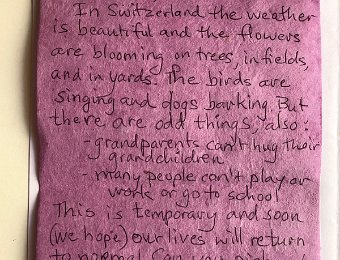 In Switzerland the weather
is beautiful and the flowers
are blooming on trees, in fields,
and in yards. The birds are
singing and dogs barking. But
there are odd things, also:
- grandparents can't hug their
grandchildren
- many people can't play or
work or go to school
This is temporary and soon
(we hope) our lives will return
to normal. Can you